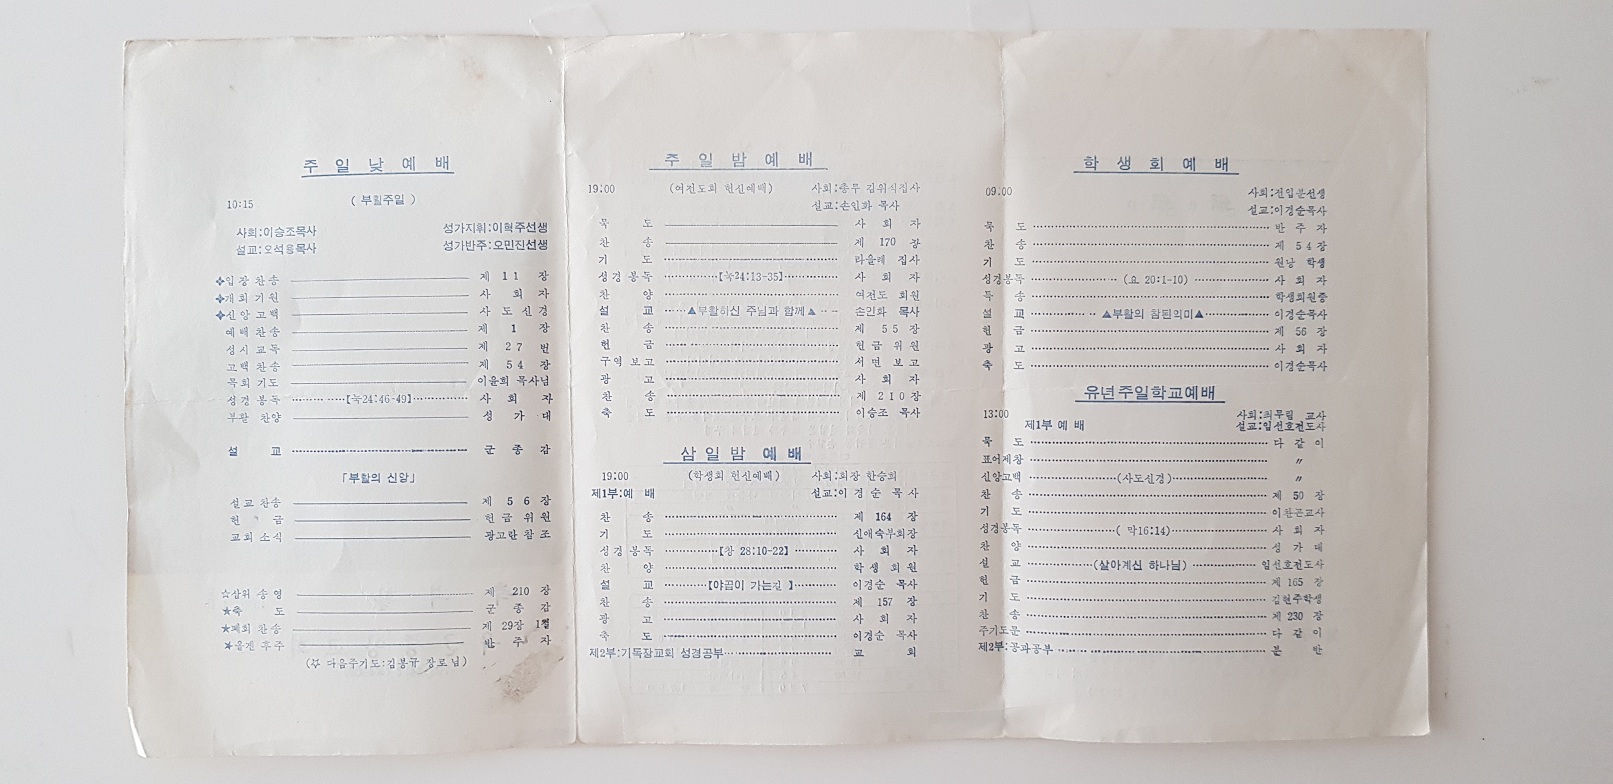 주 일 낮 예 배
10:15 ( 부활주일 )
사회:이승조목사 성가지휘:이혁주선생
설교:오석용목사 성가반주:오민진선생
❖입장 찬송 제 11 장
❖개회 기원 사 회 자
❖신앙 고백 사 도 신 경
예배 찬송 제 1 장
성시 교독 제 27 번
고백 찬송 제 54 장
목회 기도 이윤희 목사님
성경 봉독 【눅24:46-49】 사 회 자
부활 찬양 성 가 대
설 교 군 종 감
「부활의 신앙」
설교 찬송 제 56 장
헌 금 헌금 위원
교회 소식 광고란 참조
☆삼위 송영 제 210 장
★축 도 군 종 감
★폐회 찬송 제 29장 1절
★울겐 후주 반 주 자
(☆ 다음주기도:김봉규 장로님)
주 일 밤 예 배
19:00 (여전도회 헌신예배) 사회:총무 김위식집사
설교:손인화 목사
묵 도 사 회 자
찬 송 제 170 장
기 도 라율례 집사
성경 봉독 【눅24:13-35】 사 회 자
찬 양 여전도 회원
설 교 ▲부활하신 주님과 함께▲ 손인화 목사
찬 송 제 55 장
헌 금 헌금 위원
구역 보고 서면 보고
광 고 사 회 자
찬 송 제 210 장
축 도 이승조 목사
삼 일 밤 예 배
19:00 (학생회 헌신예배) 사회:회장 한승희
제1부:예 배 설교:이 경 순 목 사
찬 송 제 164 장
기 도 신애숙부회장
성경 봉독 【창 28:10-22】 사 회 자
찬 양 학생 회원
설 교 【야곱이 가는길 】 이경순 목사
찬 송 제 157 장
광 고 사 회 자
축 도 이경순 목사
제2부:기독장교회 성경공부 교 회
학 생 회 예 배
09:00 사회:전입분선생
설교:이경순목사
묵 도 반 주 자
찬 송 제 54장
기 도 원낭 학생
성경봉독 (요 20:1-10) 사 회 자
특 송 학생회원중
설 교 ▲부활의 참된의미▲ 이경순목사
헌 금 제 56 장
광 고 사 회 자
축 도 이경순목사
유년주일학교예배
13:00 사회:최무림 교사
제1부 예 배 설교:임선호전도사
묵 도 다 같 이
표어제창 〃
신앙고백 (사도신경) 〃
찬 송 제 50 장
기 도 이찬곤교사
성경봉독 ( 막16:14) 사 회 자
찬 양 성 가 대
설 교 (살아계신 하나님) 임선호전도사
헌 금 제 165 장
기 도 김현주학생
찬 송 제 230 장
주기도문 다 같 이
제2부:공과공부 분 반